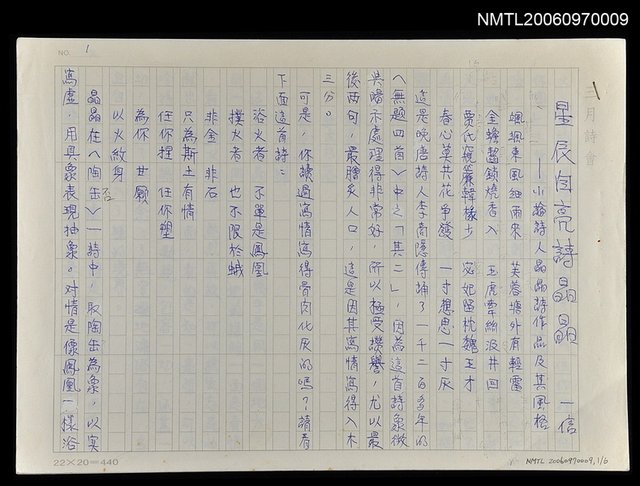 NMTL20060970009
NO. 1
三月詩會
星辰自亮詩晶晶 一信
——小論詩人晶晶詩作品及其風格
颯颯東風細雨來 芙蓉塘外有輕雷
金蟾齧鎖燒香入 玉虎牽絲汲井回
賈氏窺簾韓掾少 宓妃留枕魏王才
春心莫共花爭發 一寸相思一寸灰
這是晚唐詩人李商隱傳埔了一千二百多年的
〈無題四首〉中之「其二」，因為這首詩象徵
與暗示處理得非常好，所以極受讚譽，尤以最
後兩句，最膾炙人口，這是因其寫情寫得入木
三分。
可是，你讀過寫情寫得骨肉化灰的嗎？請看
下面這首詩：
浴火者 不單是鳳凰
撲火者 也不限於蛾
非金 非石
只為斯土有情
任你捏 任你塑
為你 甘願
以火紋身
晶晶在〈陶缶〉一詩中，取陶缶為象，以實
寫虛，用具象表現抽象。對情是像鳳凰一樣浴
22×20=440
NMTL 20060970009,1/6